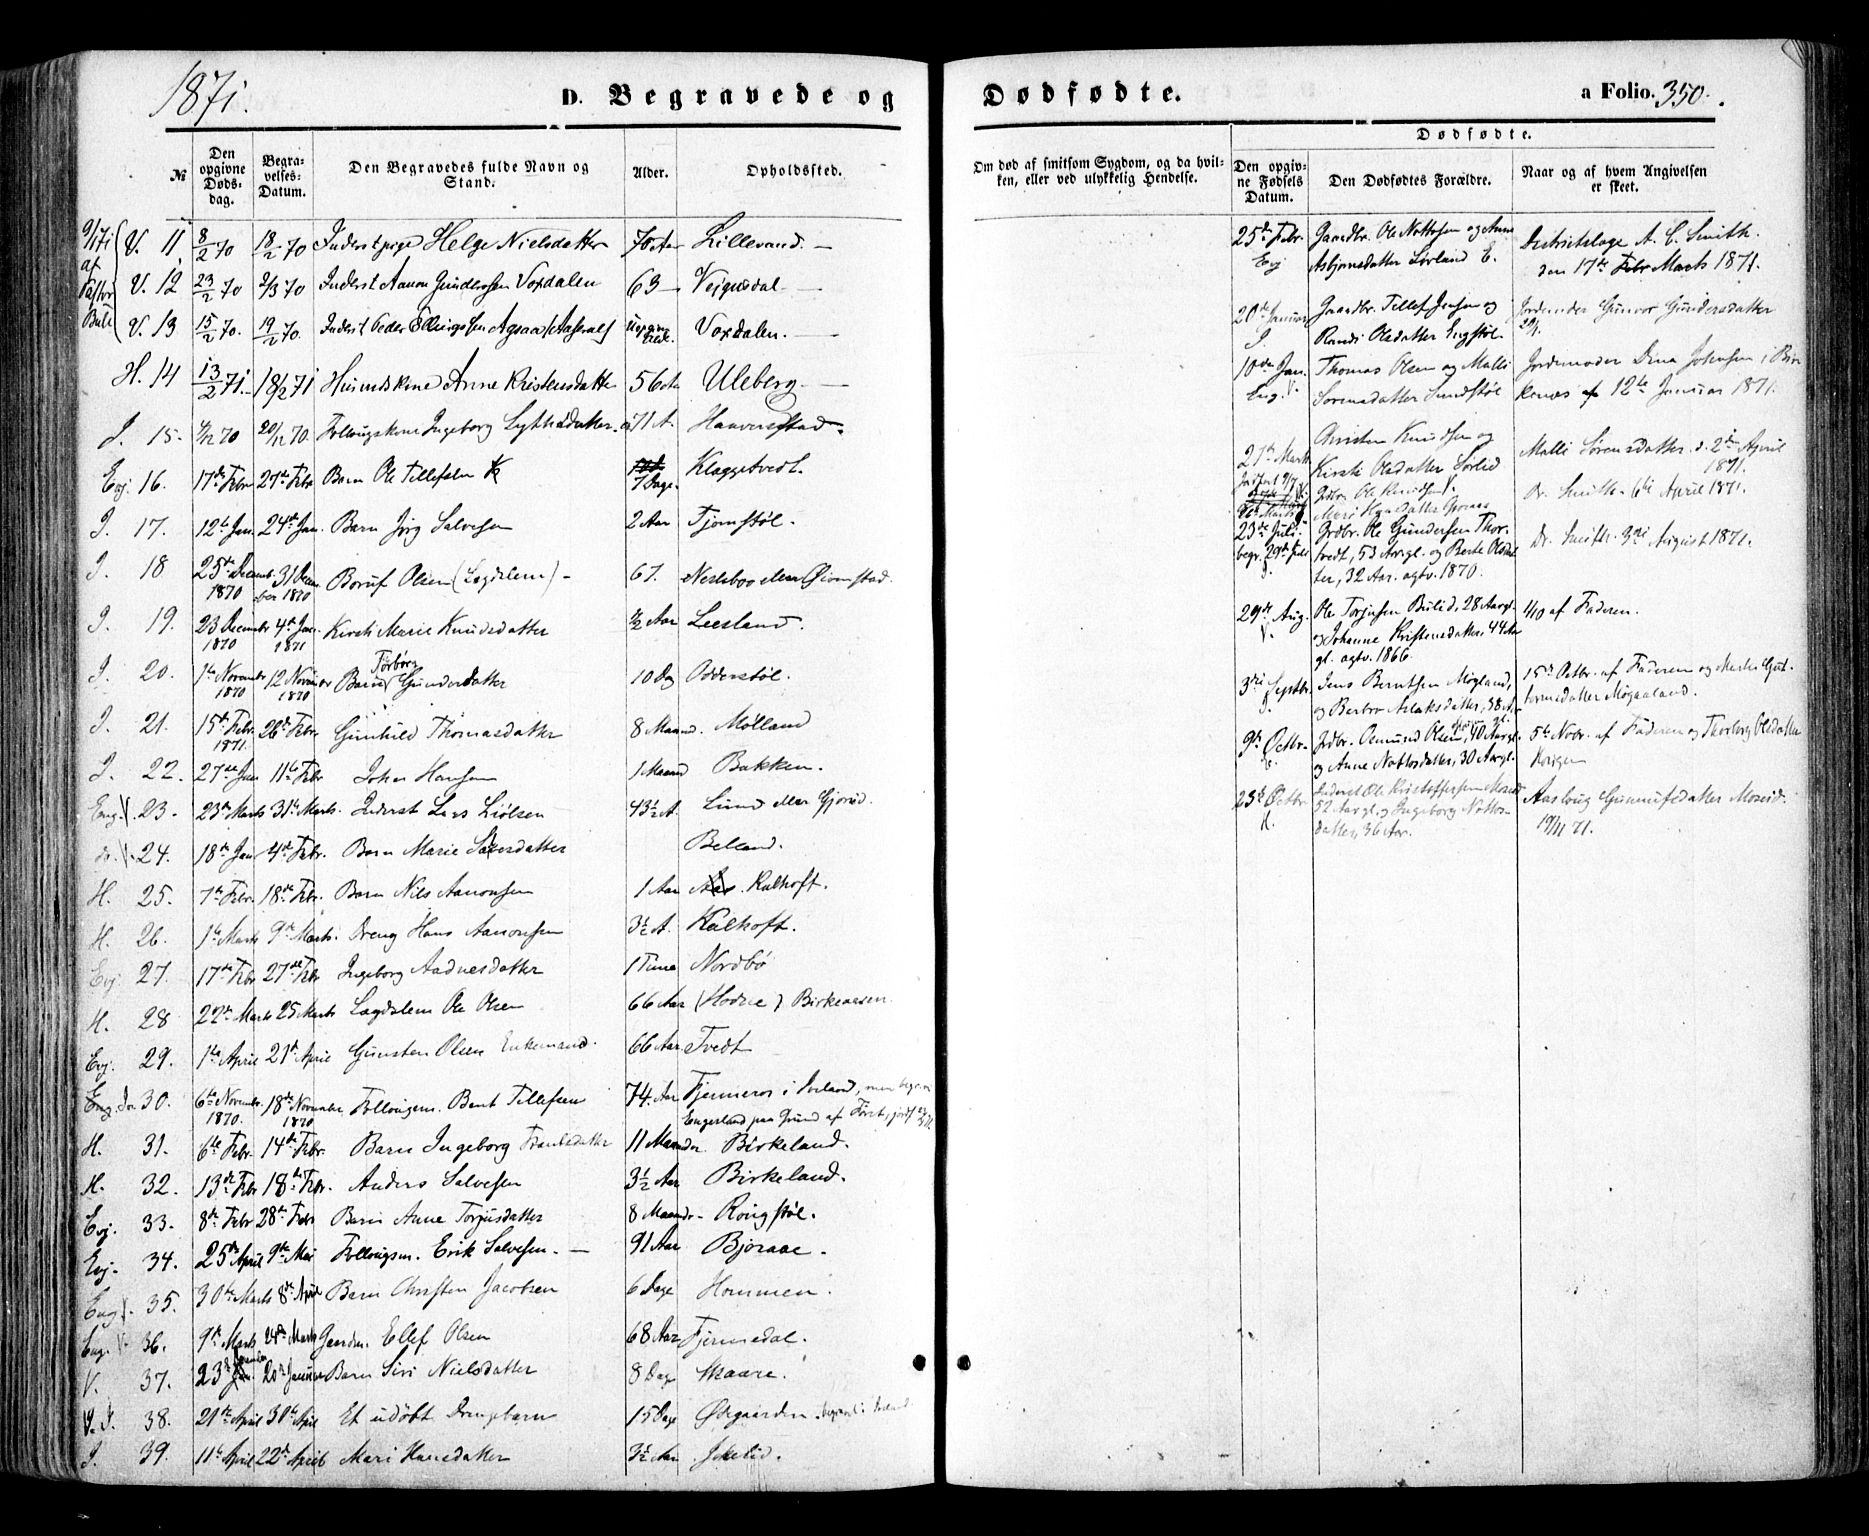 1871.
D. Begravede og
Dødfødte.
a Folio. 350.
№
Den opgivne Døds-dag.
Begra-velses-Datum.
Den Begravedes fulde Navn og Stand.
Alder.
Opholdssted.
Om død af smitsom Sygdom, og da hvil-ken, eller ved ulykkelig Hendelse.
Dødfødte.
Den opgiv-ne Fødsels Datum.
Den Dødfødtes Forældre.
Naar og af hvem Angivelsen er skeet.
V. 11 8/2 70 18/2 70 Inderst pige Helge Nielsdatter 70 Aar Lillevand. —
V. 12 23/2 70 2/3 70 Inderst Aanon Gundersen Voxdalen 63 — Veigusdal —
V. 13 15/2 70. 19/2 70. Inderst Peder Ellingsen Voxdalen. —
H. 14 13/2 71. 18/2 71 Husmdskone Anne Kristensdatter 56 Aar Uleberg. —
I. 15. 70 20/12 70. Follougskone Ingeborg 71 A. Haaverstad.
Evj. 16. 17de Febr 27de Febr Barn Ole Tellefsen 7 Dage. Klaggetvedt.
I. 17. 12te Jan. 24de Jan. Barn Jørg Salvesen 2 Aar Fjomstøl.
I. 18 25de Decemb. 1870 31 December 1870 Boruf Olsen (Lægdslem) — 67.
I. 19. 23 December 1870 4de Jan. 1871 Kirsti Marie Knudsdatter 1/2 Aar Leesland.
I. 20. 1te November 1870 12 November 1870 Barn Torborg Gundersdatter 10 Dag Odderstøl.
I. 21. 15de Febr. 1871. 26de Febr. Gunhild Thomasdatter 8 Maaned. Mølland
I. 22. 27de Jan 11te Febr Johan Hansen 1 Maaned Bakken.
Eng. V. 23. 23de Marts 31te Marts. Inderst Lars Liølsen 43 1/2 A. Lund eller
24. 18de Jan 4de Febr. Barn Marie Belland.
H. 25. 7de Febr. 18de Febr. Barn Nils Aanonsen 1 Aar Kalhoft.
H. 26. 1te Marts 9de Marts. Dreng Hans Aanonsen 3 1/2 A. Kalhoft.
Evj. 27. 17de Febr 27de Febr Ingeborg Aadnesdatter 1 Time Nordbø
H. 28 22de Marts 25 Marts Lægdslem Ole Olsen 66 Aar (Hodne) Birkenesen.
Evj. 29. 1te April 21de April Gunsten Olsen Enkemand. 66 Aar Tvedt
30. 6te Novembr. 1870. 18de November 1870 Follougsm. Bent Tellefsen 74. Aar i Iveland, men begr.
Engesland paa Grund af
H. 31. 6te Febr. 14de Febr. Barn Ingeborg 11 Maaneder. Birkeland.
H. 32. 13de Febr 18de Febr. Anders Salvesen 3 1/2 Aar Birkeland.
Evj. 33. 8de Febr 28de Febr Barn Anne Torjusdatter 8 Maaneder Rongstøl.
Evj. 34. 25de April 9de Mai Follougsm. Erik Salvesen. — 91 Aar Bjoraae.
Eng. V. 35. 30te Marts 8de April Barn Christen Jacobsen 6 Dage Hommen.
Eng. V. 36. 9de Marts 24de Marts Gaardm. Ellef Olsen 68 Aar Fjermedal.
V. 37. 23de 20de Januar Barn Siri Nielsdatter 8 Dage Maare.
V. I. 38. 21de April 30te April Et udøbt Drengebarn 15 Dage Ødegaarden. begravet i Iveland
I. 39. 11te April 22de April Mari Hansdatter 3 1/2 Aar
25de Febr. Evj Gaardbr. Ole Nottosen og Anne
Asbjørnsdatter Lørland E. Distriktslæge A. C. Smith.
den 17de Marts 1871.
20de Januar I. Gaardbr. Tellef Jensen og
Randi Olsdatter Engstøl. Jordemoder Gunvor Gundersdatter
10de Jan. Eng. V. Thomas Olsen og Malli
Sorensdatter Sundstøl Jordemoder Dina Johnsen i Bir
kenes 12te Januar 1871.
21de Marts Christen Knudsen og
Kirsti Olsdatter Sørlid Malli Sørensdatter. d. 2den April
1871.
Ole Knudsen V. Dr. Smith. 6te April 1871.
23de Juli. begr. 29de Juli I. Grdbr. Ole Gundersen Thor-
tvedt, 53 Aargl. og Berte Olsdat-
ter, 32 Aar. agtv. 1870. Dr. Smith. 3die August 1871.
29de Aug. V. Ole Torjusen Bulid, 28 Aargl.
og Johanne Kristensdatter 44 Aar
gl. agtv. 1866. 1/10 af Faderen.
3die Septbr. I. Jens Berntsen Møgland,
og Berbro Aslaksdatter, 38 Aar gl. 15de Octbr. af Faderen og Marte Gut-
tormsdatter Møgaaland.
9de Octbr. Grdbr. Osmund Olsen, 40 Aargl.
og Anne Nottosdatter, 30 Aargl. 5te Novbr. af Faderen og Thorborg Olsdatter
23de Octbr. H. Inderst Ole Kristoffersen Moseid
52 Aar gl. og Ingeborg Nottos-
datter, 36 Aar. Aaslaug Gunnufsdatter Moseid.
19/11 71.